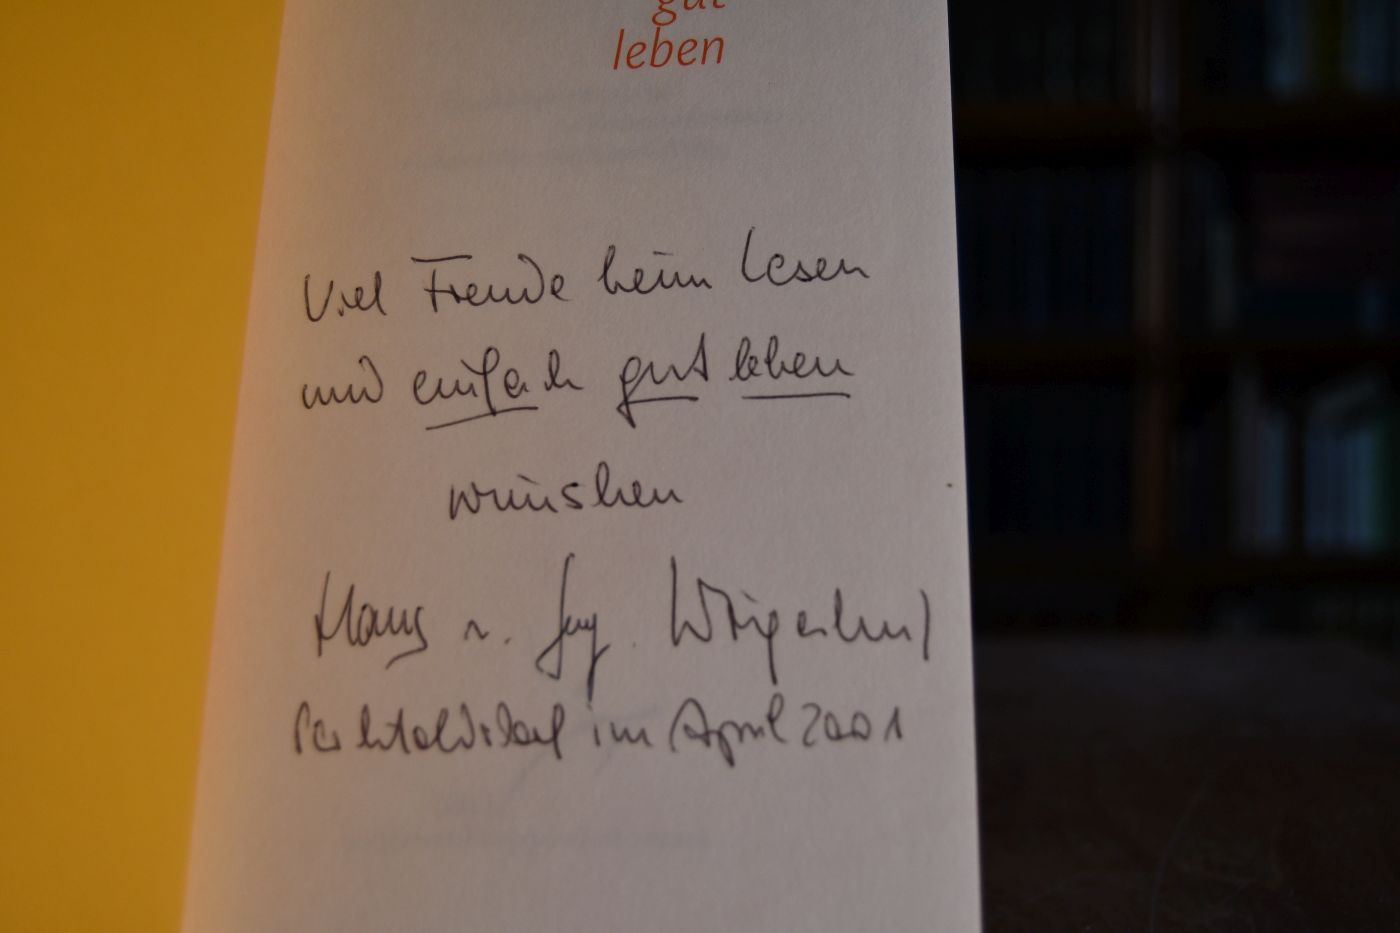 gut
leben
Viel Freude beim Lesen
und einfach gut leben
wünschen
Hans u.
im April 2001